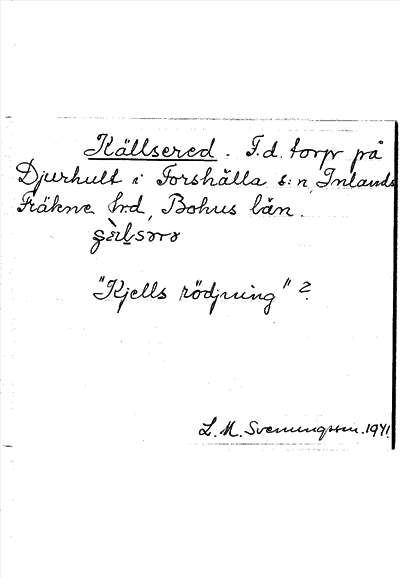 Källsered. F.d. torp på
Djurhult i Forshälla s:n, Inlands
Fräkne h:d, Bohus län.
"Kjells rödjning"?
L. M. Svenungsson. 1941.